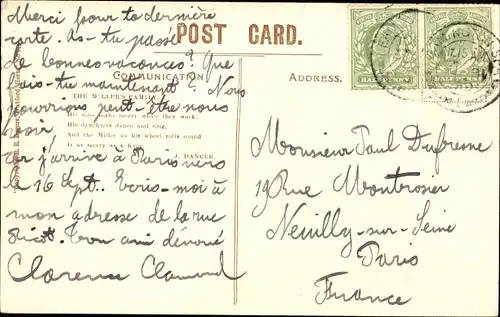 Merci pour ta dernière
carte. As-tu passé
de bonnes vacances? Que
fais-tu maintenant? Nous
pourrions peut-être nous
voir,
car j'arrive à Paris vers
le 16 Sept. Ecris-moi à
mon adresse de la rue
Ton ami dévoué
Clarence
POST CARD.
COMMUNICATION
THE MILLER'S FAMILY
His sons make merry while they work,
His daughters dance and sing,
And the Miller as his wheel rolls round
Is as merry as a King.
J. DANCER.
ADDRESS.
HALFPENNY
HALFPENNY
Monsieur Paul Dufresne
19 Rue Montrosier
Neuilly-sur-Seine
Paris
France